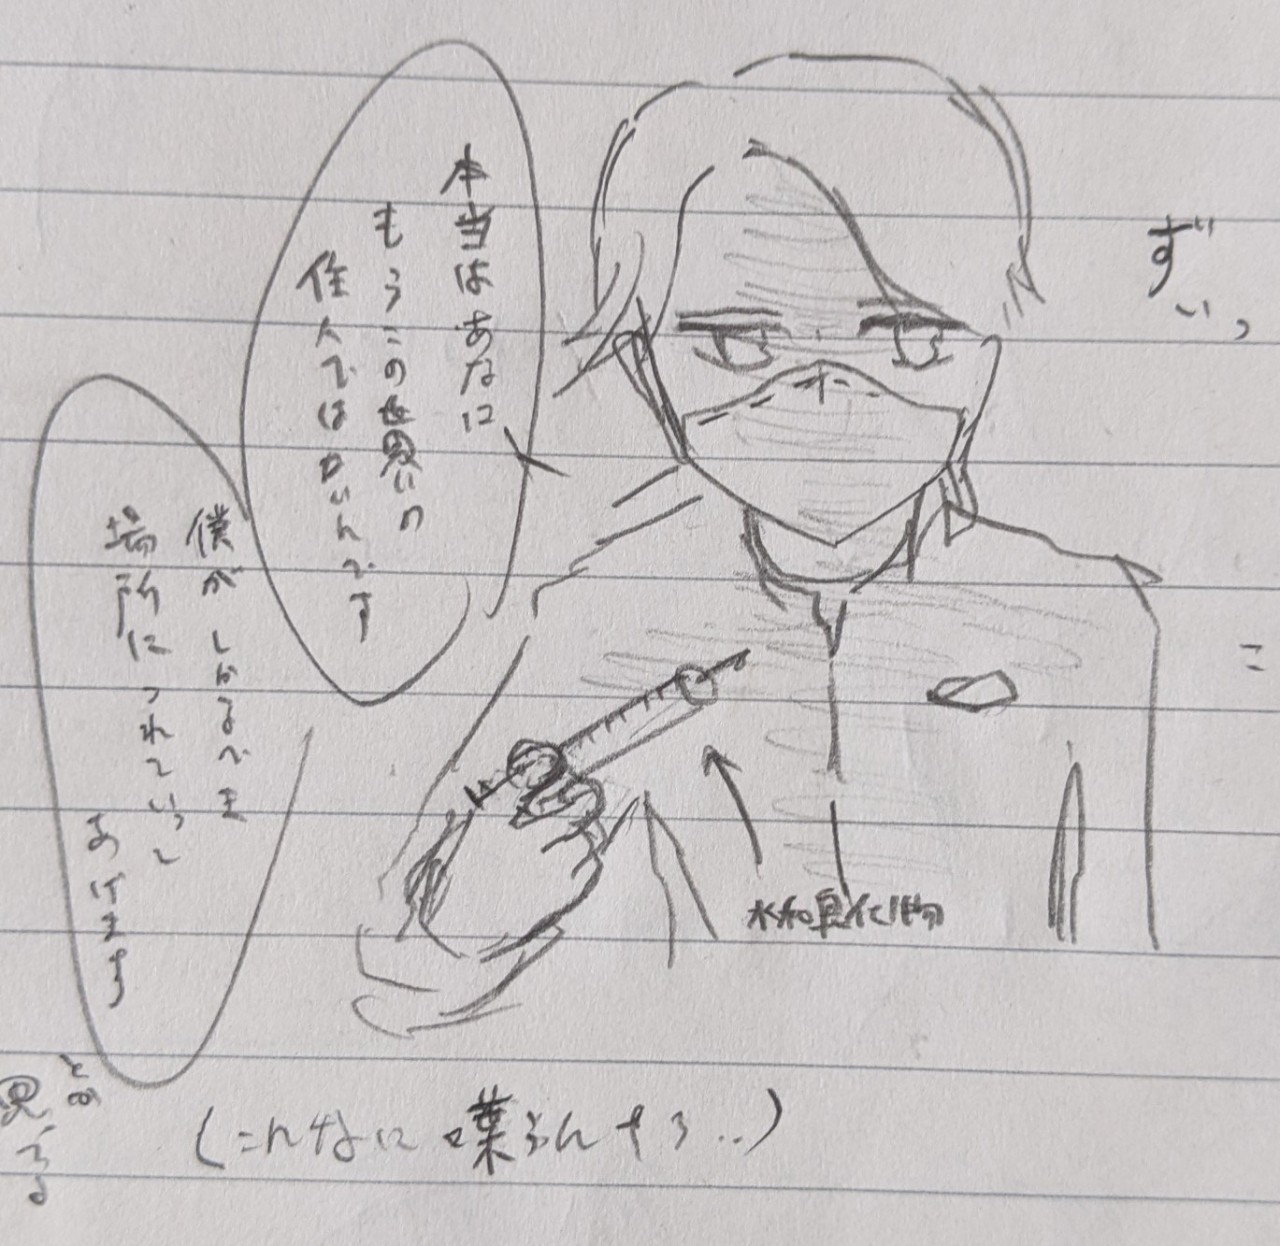 ずいっ
こ
本当はあなに
もうこの世界の
住人ではないんです
僕がしかるべき
場所につれていって
あげます
水和臭化物
(こんなに喋るんすね..)